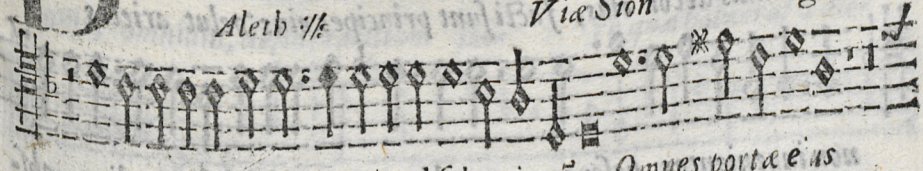 Aleth :||: Viæ Sion
Omnes portæ e us